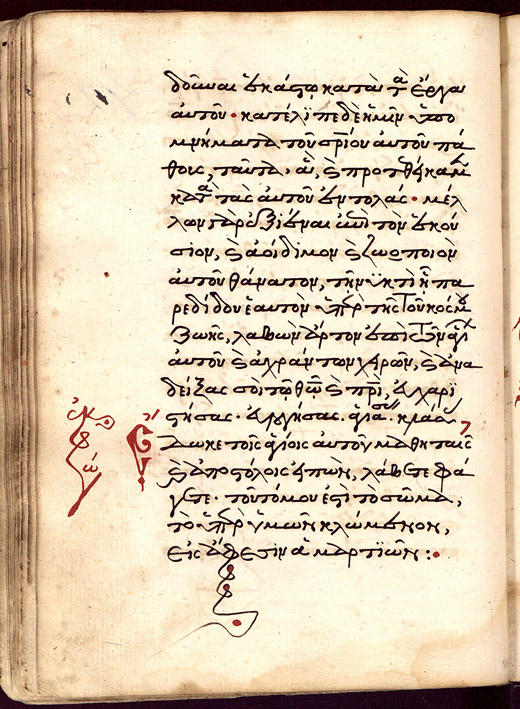 δοῦναι ἑκάστω κατὰ τὰ ἔργα
αὐτοῦ · κατέλιπε δὲ ἡμῖν ὑπο
μνήματα τοῦ σρίου αὐτοῦ πά
θους, ταῦτα ἃ προτεθήκαμεν
κατὰ τὰς αὐτοῦ ἐντολάς · μέλ
λων γὰρ ἐξιέναι ἐπὶ τὸν ἑκού
σιον, καὶ ἀοίδιμον καὶ ζωοποιὸν
αὐτοῦ θάνατον, τῇ νυκτὶ ᾗ πα
ρεδίδου ἑαυτὸν ὑπὲρ τῆς τοῦ κόσμου
ζωῆς, λαβὼν ἄρτον ἐπὶ τῶν ἁγί
αὐτοῦ καὶ ἀχράντων χειρῶν, καὶ ἀνα
δείξας σοὶ τῶ θῶ καὶ πρὶ, εὐχαρι
στήσας · εὐλογήσας · ἁγιάσας · κλάσας
ἐκφώ
Ἔδωκε τοῖς ἁγίοις αὐτοῦ μαθηταῖς
καὶ ἀποστόλοις εἰπών, λάβετε φά
γετε · τοῦτό μου ἐστὶ τὸ σῶμα,
τὸ ὑπὲρ ὑμῶν κλώμενον,
εἰς ἄφεσιν ἁμαρτιῶν :·